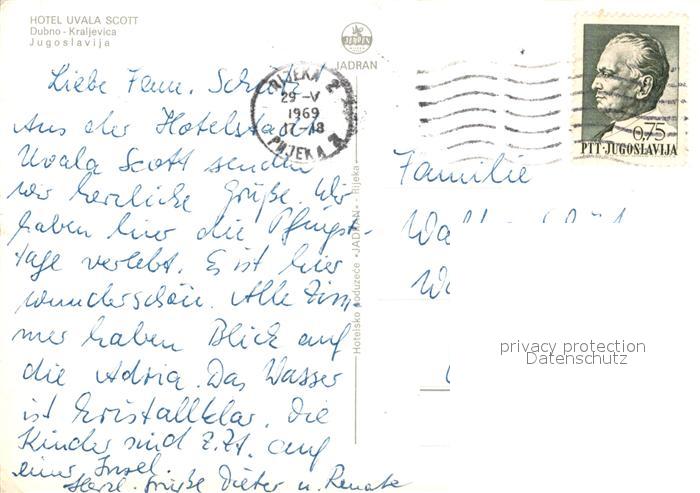 HOTEL UVALA SCOTT
Dubno - Kraljevica
Jugoslavija
JADRAN
RIJEKA 2
29-V
1969
17-18
RIJEKA 2
0,75
PTT-JUGOSLAVIJA
Liebe Fam.
Aus der Hotelstadt
Uvala Scott senden
wir herzliche Grüße. Wir
haben hier die Pfingst-
tage verlebt. Es ist hier
wunderschön. Alle Zim-
mer haben Blick auf
die Adria. Das Wasser
ist kristallklar. Die
Kinder sind z.Zt. auf
einer Insel.
Herzl. Grüße Dieter u. Renate
Hotelsko poduzeće »JADRAN« - Rijeka
Familie
privacy protection
Datenschutz